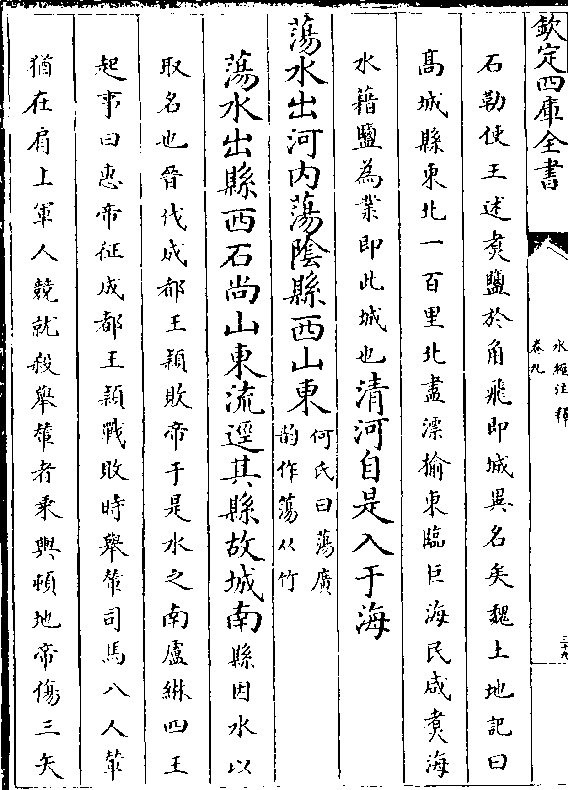 欽定四庫全書
水經注釋
卷九
三十九
石勒使王述煑鹽於角飛即城異名矣魏土地記曰
高城縣東北一百里北盡漂榆東臨巨海民咸煑海
水藉鹽為業即此城也清河自是入于海
蕩水出河内蕩陰縣西山東何氏曰蕩廣韵作蕩从竹
蕩水出縣西石尚山東流逕其縣故城南縣因水以
取名也晉伐成都王穎敗帝于是水之南盧綝四王
起事曰惠帝征成都王穎戰敗時舉輦司馬八人輦
猶在肩上軍人競就殺舉輦者乗輿頓地帝傷三矢